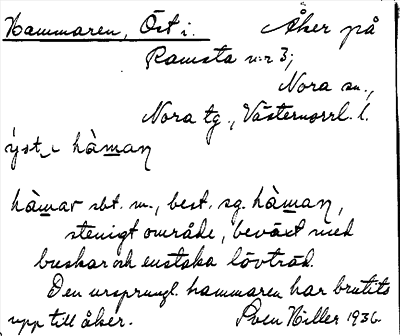 Hammaren, Öst i. Åker på
Ramsta nr 3;
Nora sn.,
Nora tg., Västernorrl. l.
ýst_i hàman
hàmar sbt. m., best. sg. hàman,
stenigt område, beväxt med
buskar och enstaka lövträd.
Den ursprungl. hammaren har brutits
upp till åker. Sven Hiller 1936